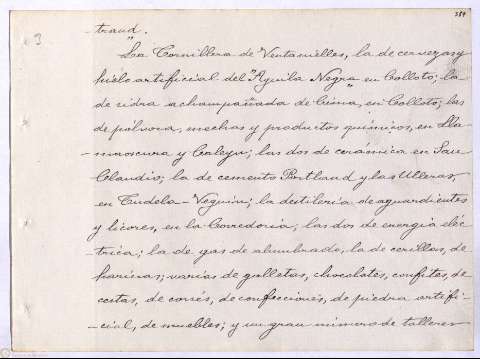 384
3
-traud.
La Tornillera de Ventanielles, la de cervezas y
hielo artificial del "Aguila Negra" en Colloto; la
de sidra achampañada de Cima, en Colloto; las
de pólvora, mechas y productos químicos, en Lla-
-maoscura y Caleyu; las dos de cerámica en San
Claudio; la de cemento Portland y las Ulleras,
en Tudela-Veguin; la destilería de aguardientes
y licores, en la Corredoria; las dos de energía eléc-
-trica; la de gas de alumbrado, la de cerillas, de
harinas; varias de galletas, chocolates, confites, de
cestas, de corsés, de confecciones, de piedra artifi-
-cial, de muebles; y un gran número de talleres